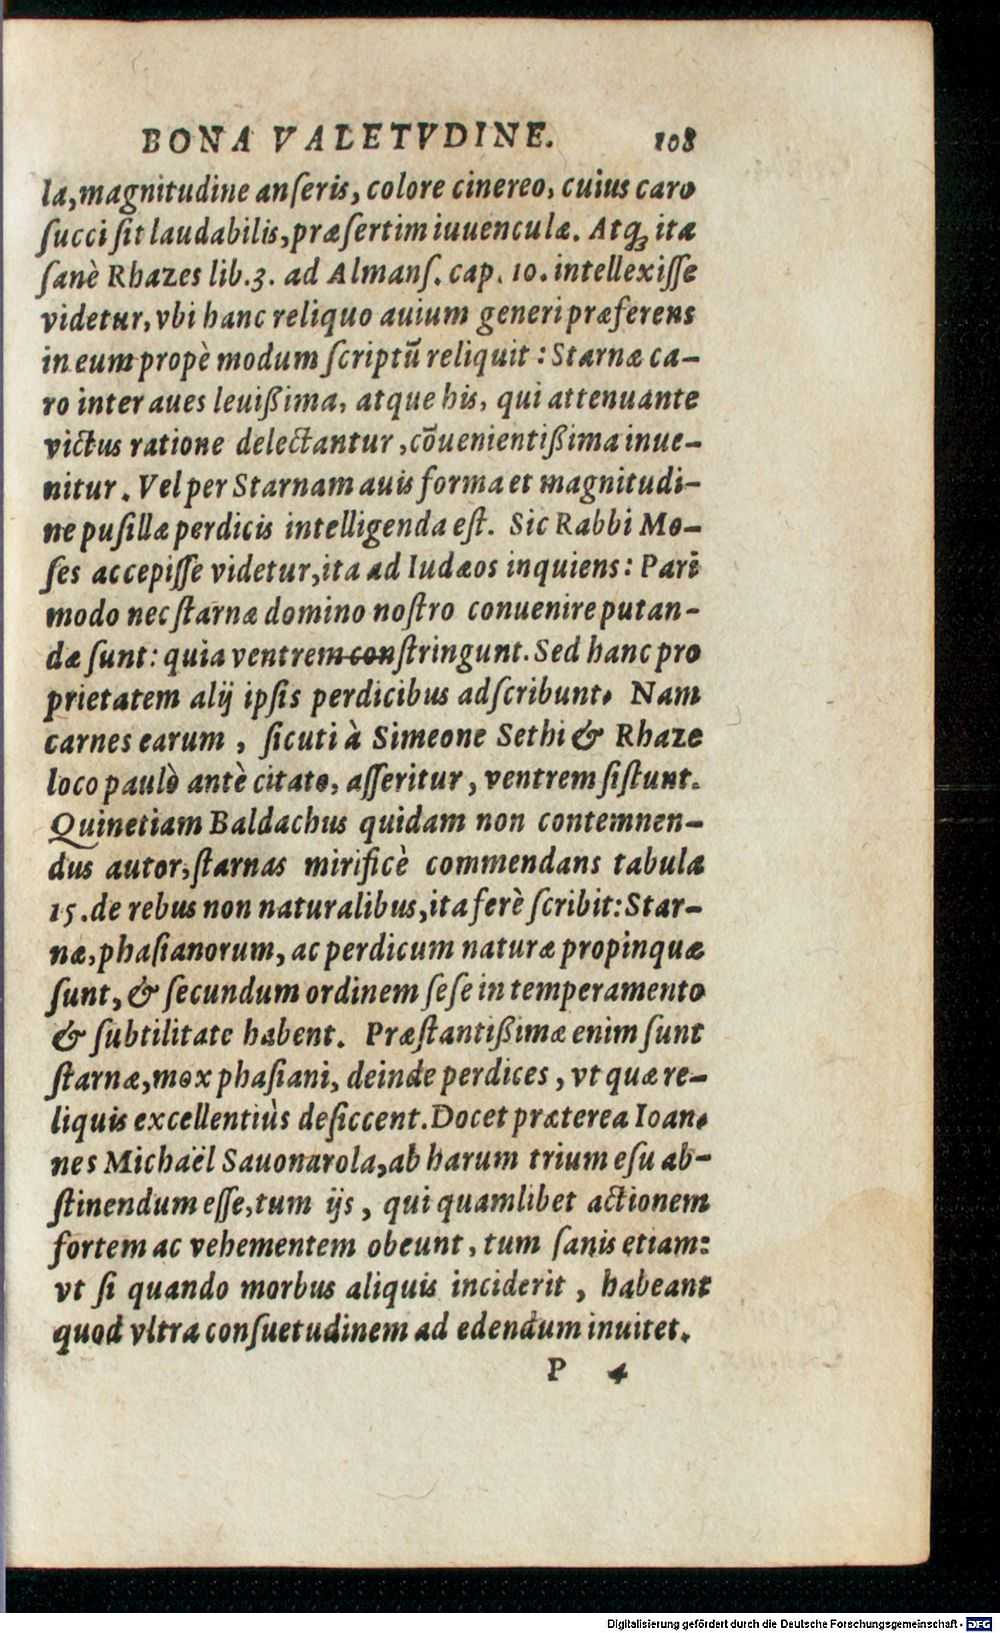 BONA VALETVDINE. 108
la, magnitudine anſeris, colore cinereo, cuius caro
ſucci ſit laudabilis, præſertim iuuenculæ. Atq; ita
ſanè Rhazes lib. 3. ad Almanſ. cap. 10. intellexiſſe
videtur, vbi hanc reliquo auium generi præferens
in eum propè modum ſcriptũ reliquit : Starnæ ca-
ro inter aues leuißima, atque his, qui attenuante
victus ratione delectantur, cõuenientißima inue-
nitur. Vel per Starnam auis forma et magnitudi-
ne puſillæ perdicis intelligenda eſt. Sic Rabbi Mo-
ſes accepiſſe videtur, ita ad Iudæos inquiens : Pari
modo nec ſtarnæ domino noſtro conuenire putan-
dæ ſunt : quia ventrem conſtringunt. Sed hanc pro
prietatem alij ipſis perdicibus adſcribunt. Nam
carnes earum, ſicuti à Simeone Sethi & Rhaze
loco paulò antè citato, aſſeritur, ventrem ſiſtunt.
Quinetiam Baldachus quidam non contemnen-
dus autor, ſtarnas mirificè commendans tabula
15. de rebus non naturalibus, ita ferè ſcribit : Star-
næ, phaſianorum, ac perdicum naturæ propinquæ
ſunt, & ſecundum ordinem ſeſe in temperamento
& ſubtilitate habent. Præſtantißimæ enim ſunt
ſtarnæ, mox phaſiani, deinde perdices, vt quæ re-
liquis excellentiùs deſiccent. Docet præterea Ioan-
nes Michaël Sauonarola, ab harum trium eſu ab-
ſtinendum eſſe, tum ijs, qui quamlibet actionem
fortem ac vehementem obeunt, tum ſanis etiam:
vt ſi quando morbus aliquis inciderit, habeant
quod vltra conſuetudinem ad edendum inuitet.
P 4
Digitalisierung gefördert durch die Deutsche Forschungsgemeinschaft - DFG